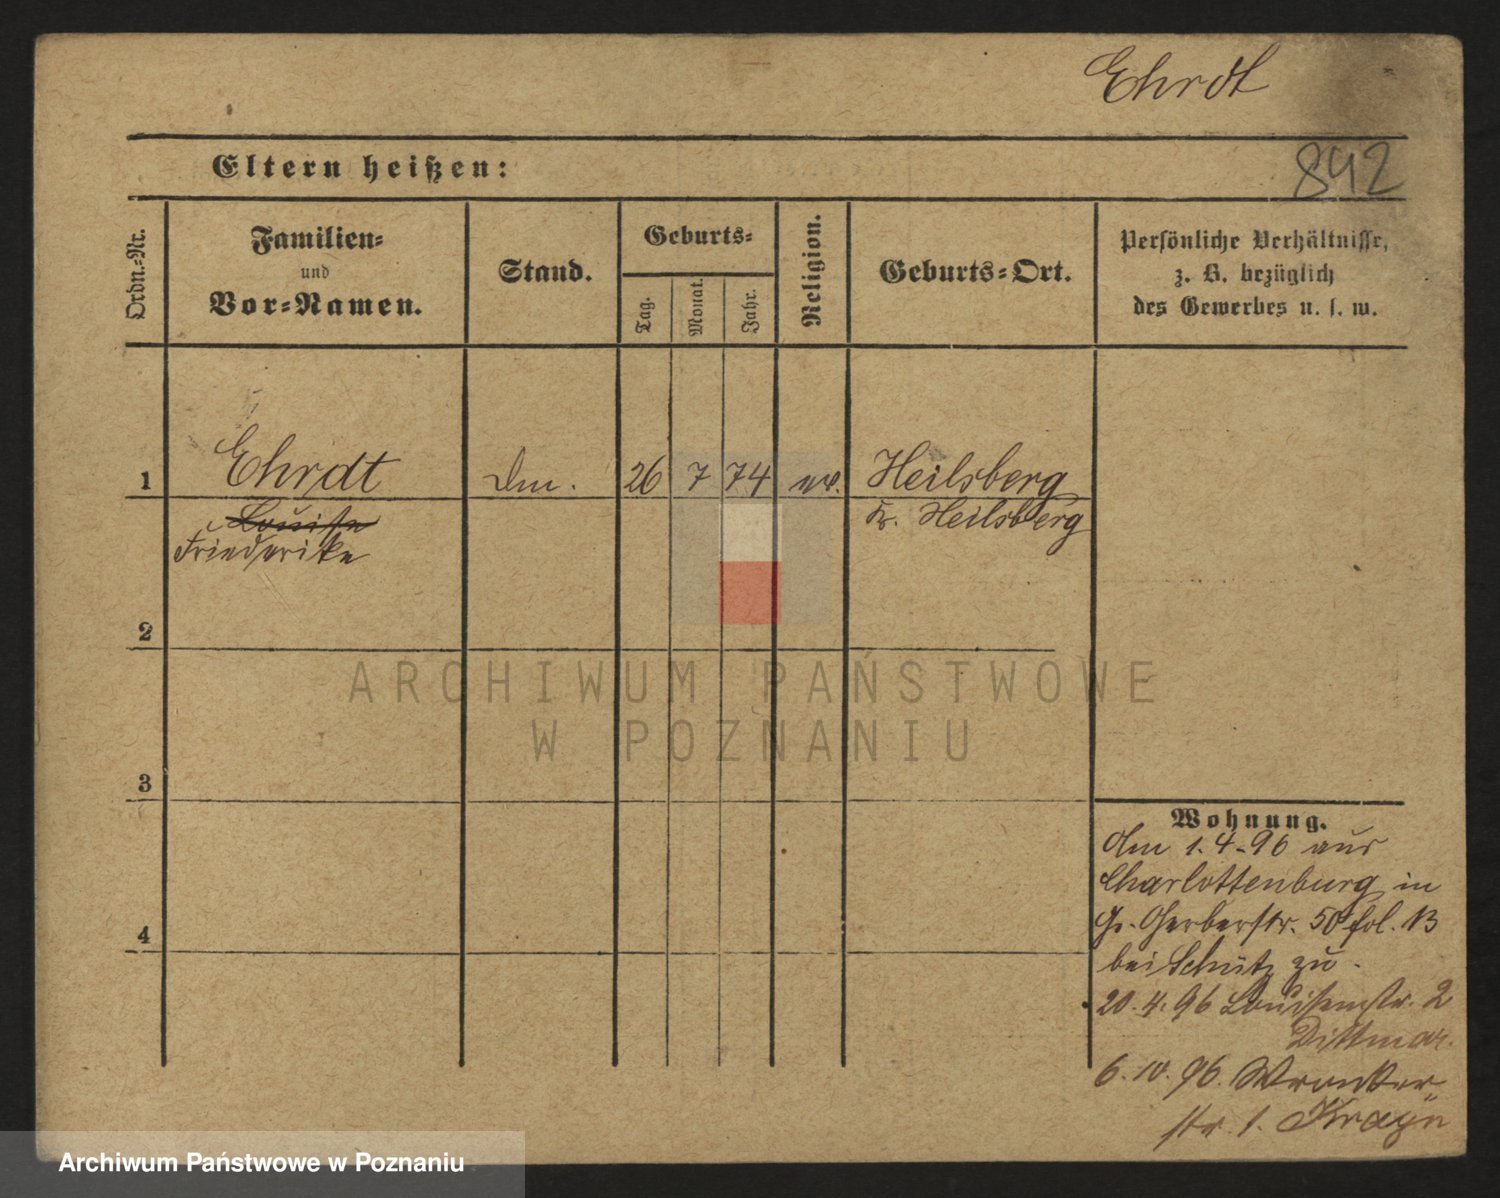 Ehrdt
Eltern heißen:
892
Ordn.-Nr.
Familien-
und
Vor-Namen.
Stand.
Geburts-
Tag.
Monat.
Jahr.
Religion.
Geburts-Ort.
Persönliche Verhältnisse,
z. B. bezüglich
des Gewerbes u. s. w.
1
Ehrdt
26
7
74
ev.
Heilsberg
Louise
Kr. Heilsberg
Friederike
2
ARCHIWUM PAŃSTWOWE
W POZNANIU
3
Wohnung.
Am 1.4.96 aus
Charlottenburg in
Gr. Gerberstr. 50 fol. 13
bei Schütz zu.
20.4.96 Louisenstr. 2
Dittmar.
6.10.96. Wronker
str. 1.
4
Archiwum Państwowe w Poznaniu